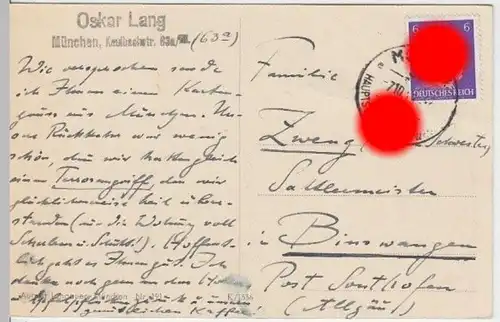 Oskar Lang
München, Kaulbachstr. 63a/III. (63a)
Wie versprochen sende
ich Ihnen einen Karten-
gruss aus München. Un-
sere Rückkehr war wenig
schön, denn wir hatten gleich
einen Terrorangriff, den wir
glücklicherweise heil überstanden
(nur die Wohnung voll
Scherben u. Schutt!) Hoffent-
lich geht es Ihnen gut. Ich
denke noch gern an das
gemütlichen Kaffee!
Nr. 191
K/1336
Familie
Zweng
Schwester
Sattlermeister
in Binswangen
Post Sonthofen
(Allgäu)
6 6
DEUTSCHES REICH
HAUPTS